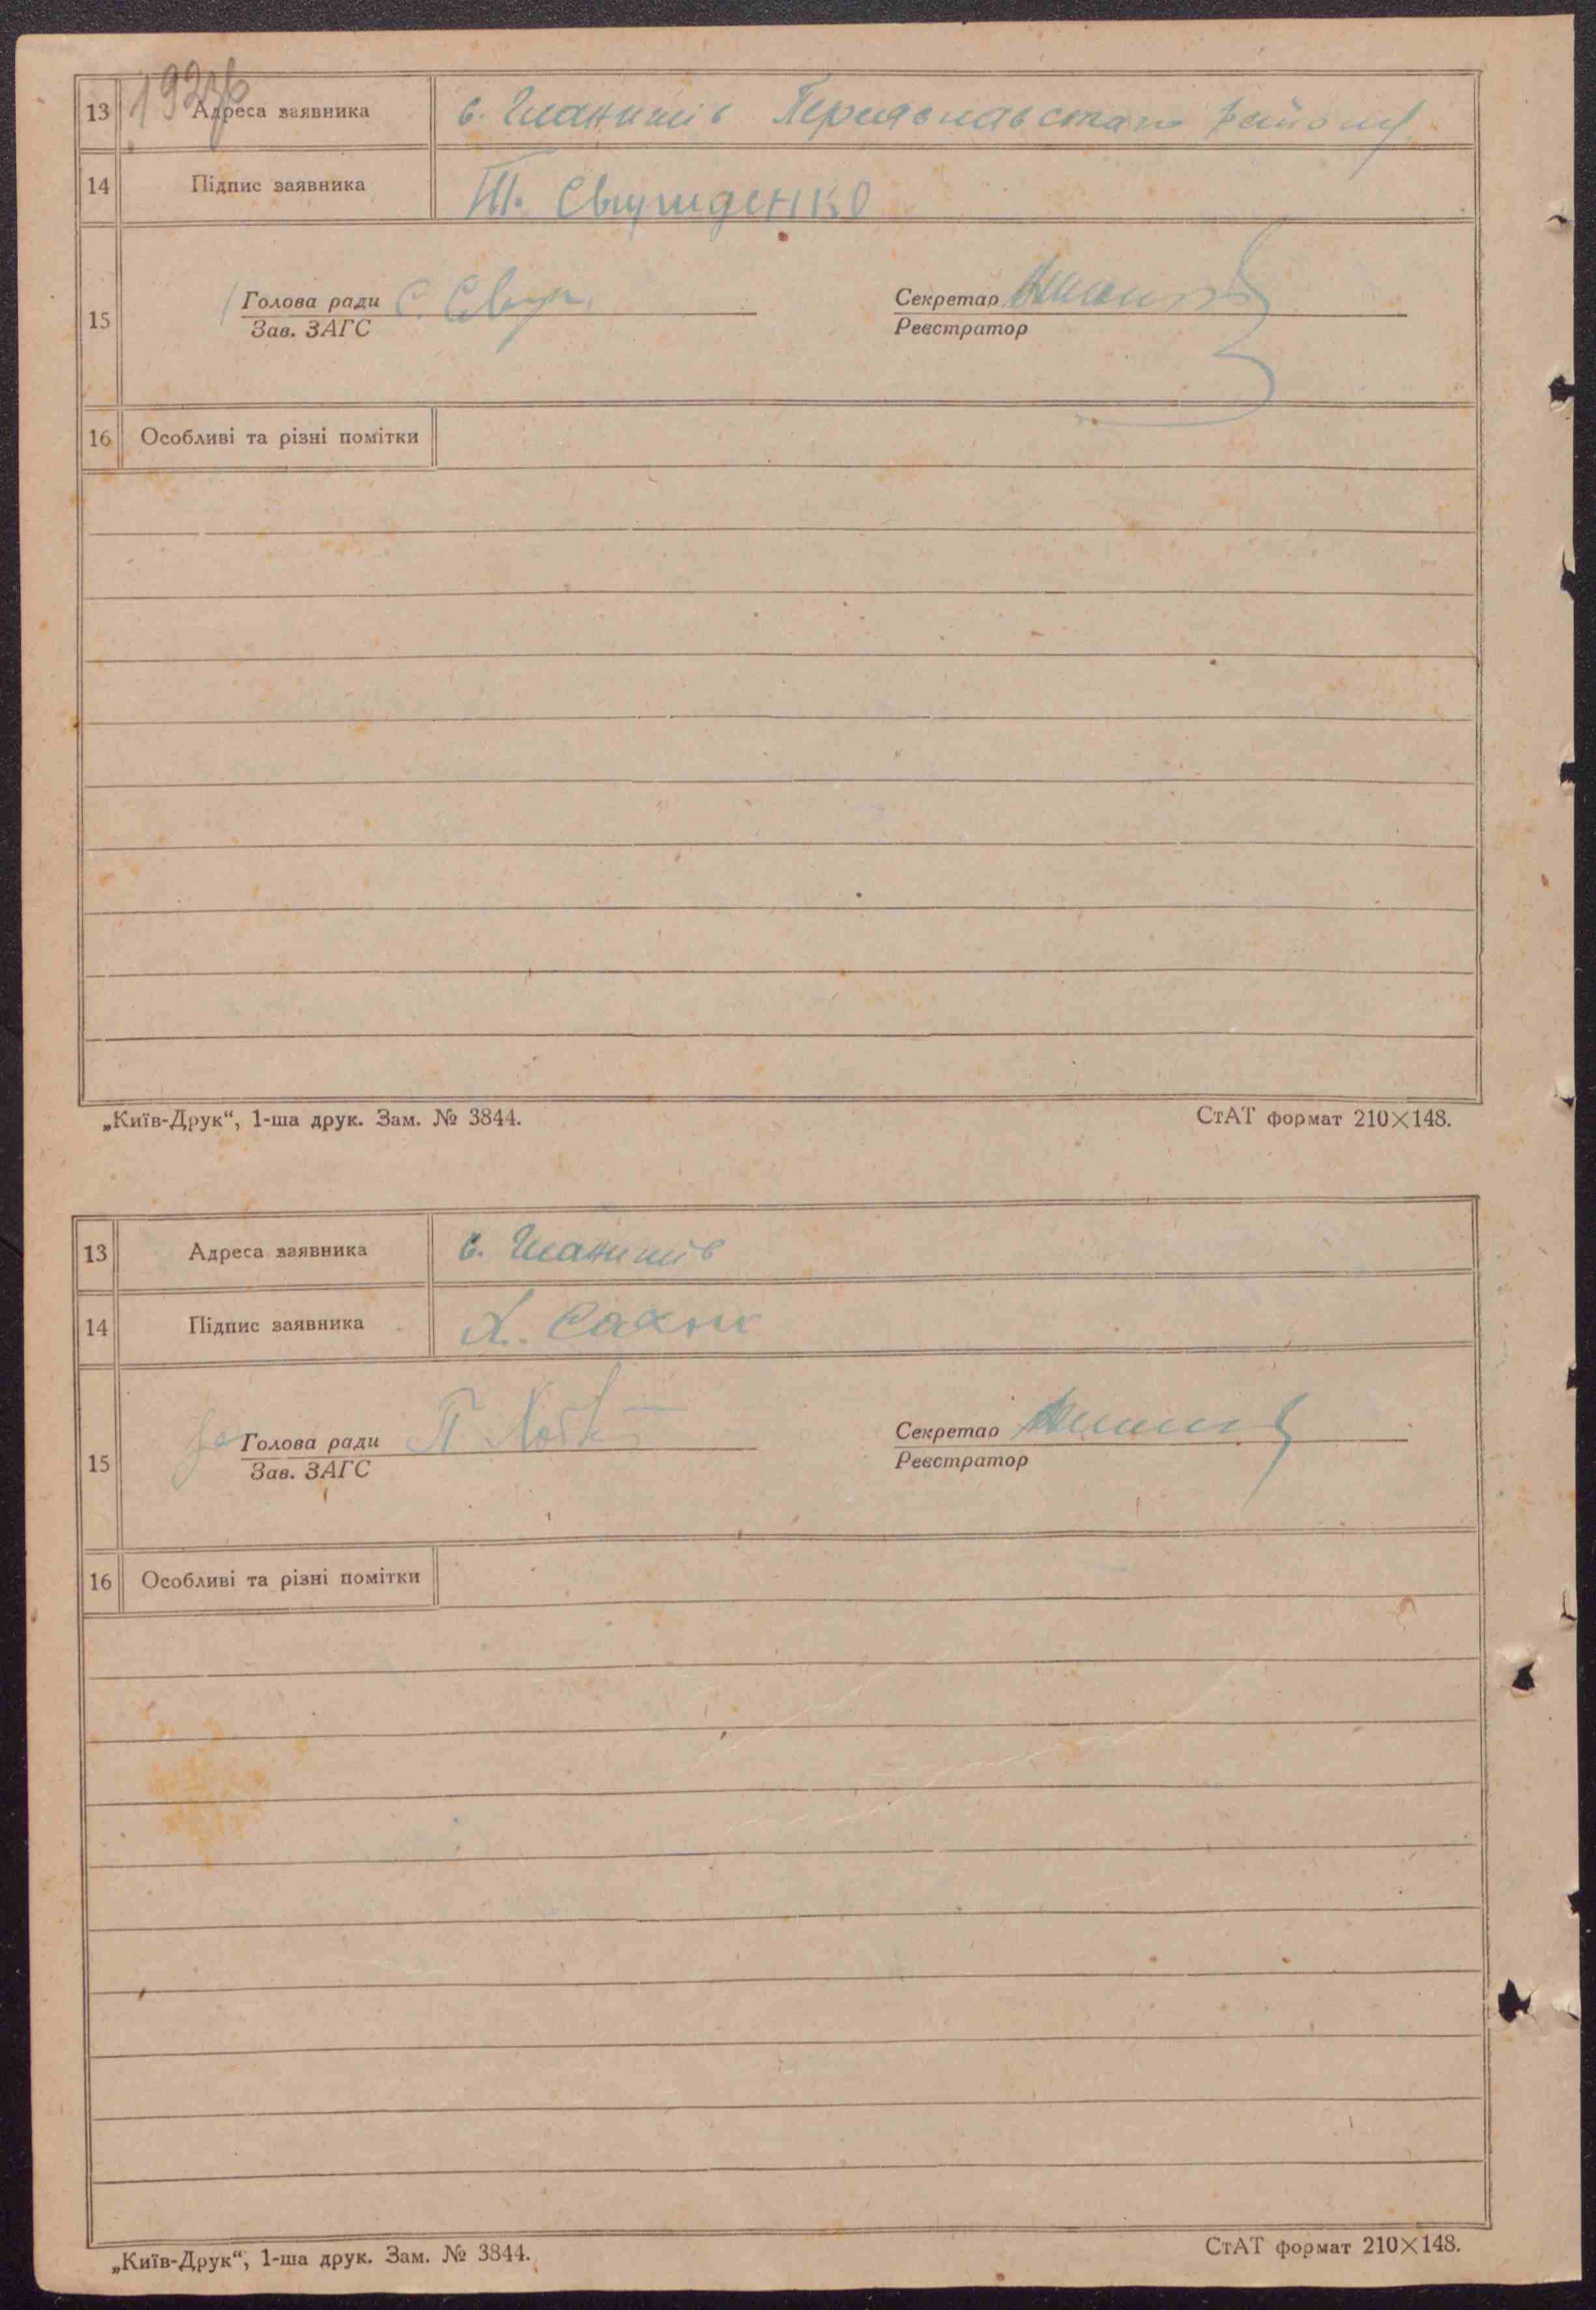 13 Адреса заявника с. Гланишів Переяславського району
14 Підпис заявника Т. Свириденко
15 Голова ради С. Свир. Секретар
Зав. ЗАГС Реєстратор
16 Особливі та різні помітки
„Київ-Друк“, 1-ша друк. Зам. № 3844. СтАТ формат 210×148.
13 Адреса заявника с. Гланишів
14 Підпис заявника Х. Сахно
15 Голова ради П Секретар
Зав. ЗАГС Реєстратор
16 Особливі та різні помітки
„Київ-Друк“, 1-ша друк. Зам. № 3844. СтАТ формат 210×148.